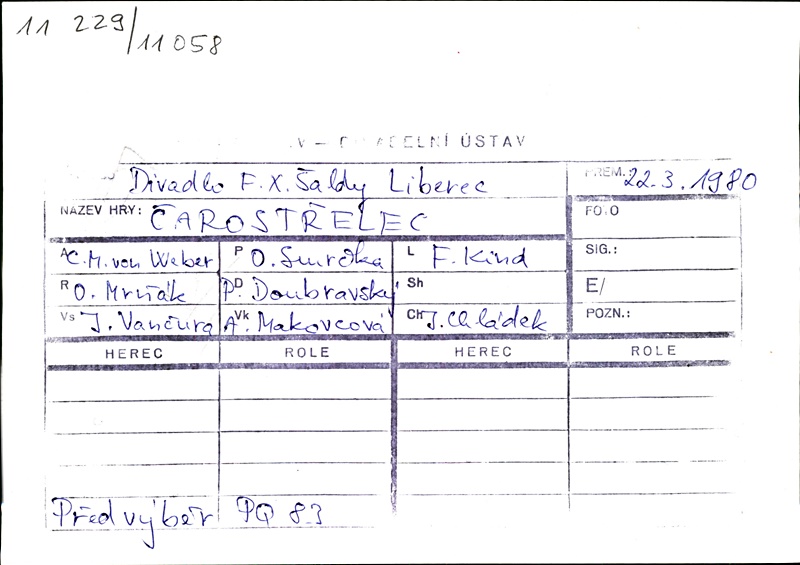 11 229/11 058
DIVADELNÍ ÚSTAV
Divadlo F. X. Šaldy Liberec PREM. 22.3.1980
NÁZEV HRY: ČAROSTŘELEC FOTO
A C. M. von Weber P O. Smrčka L F. Kind SIG.:
R O. Mrňák D P. Doubravský Sh E/
Vs J. Vančura Vk A. Makovcová Ch J. Chládek POZN.:
HEREC ROLE HEREC ROLE
Předvýběr PQ 83